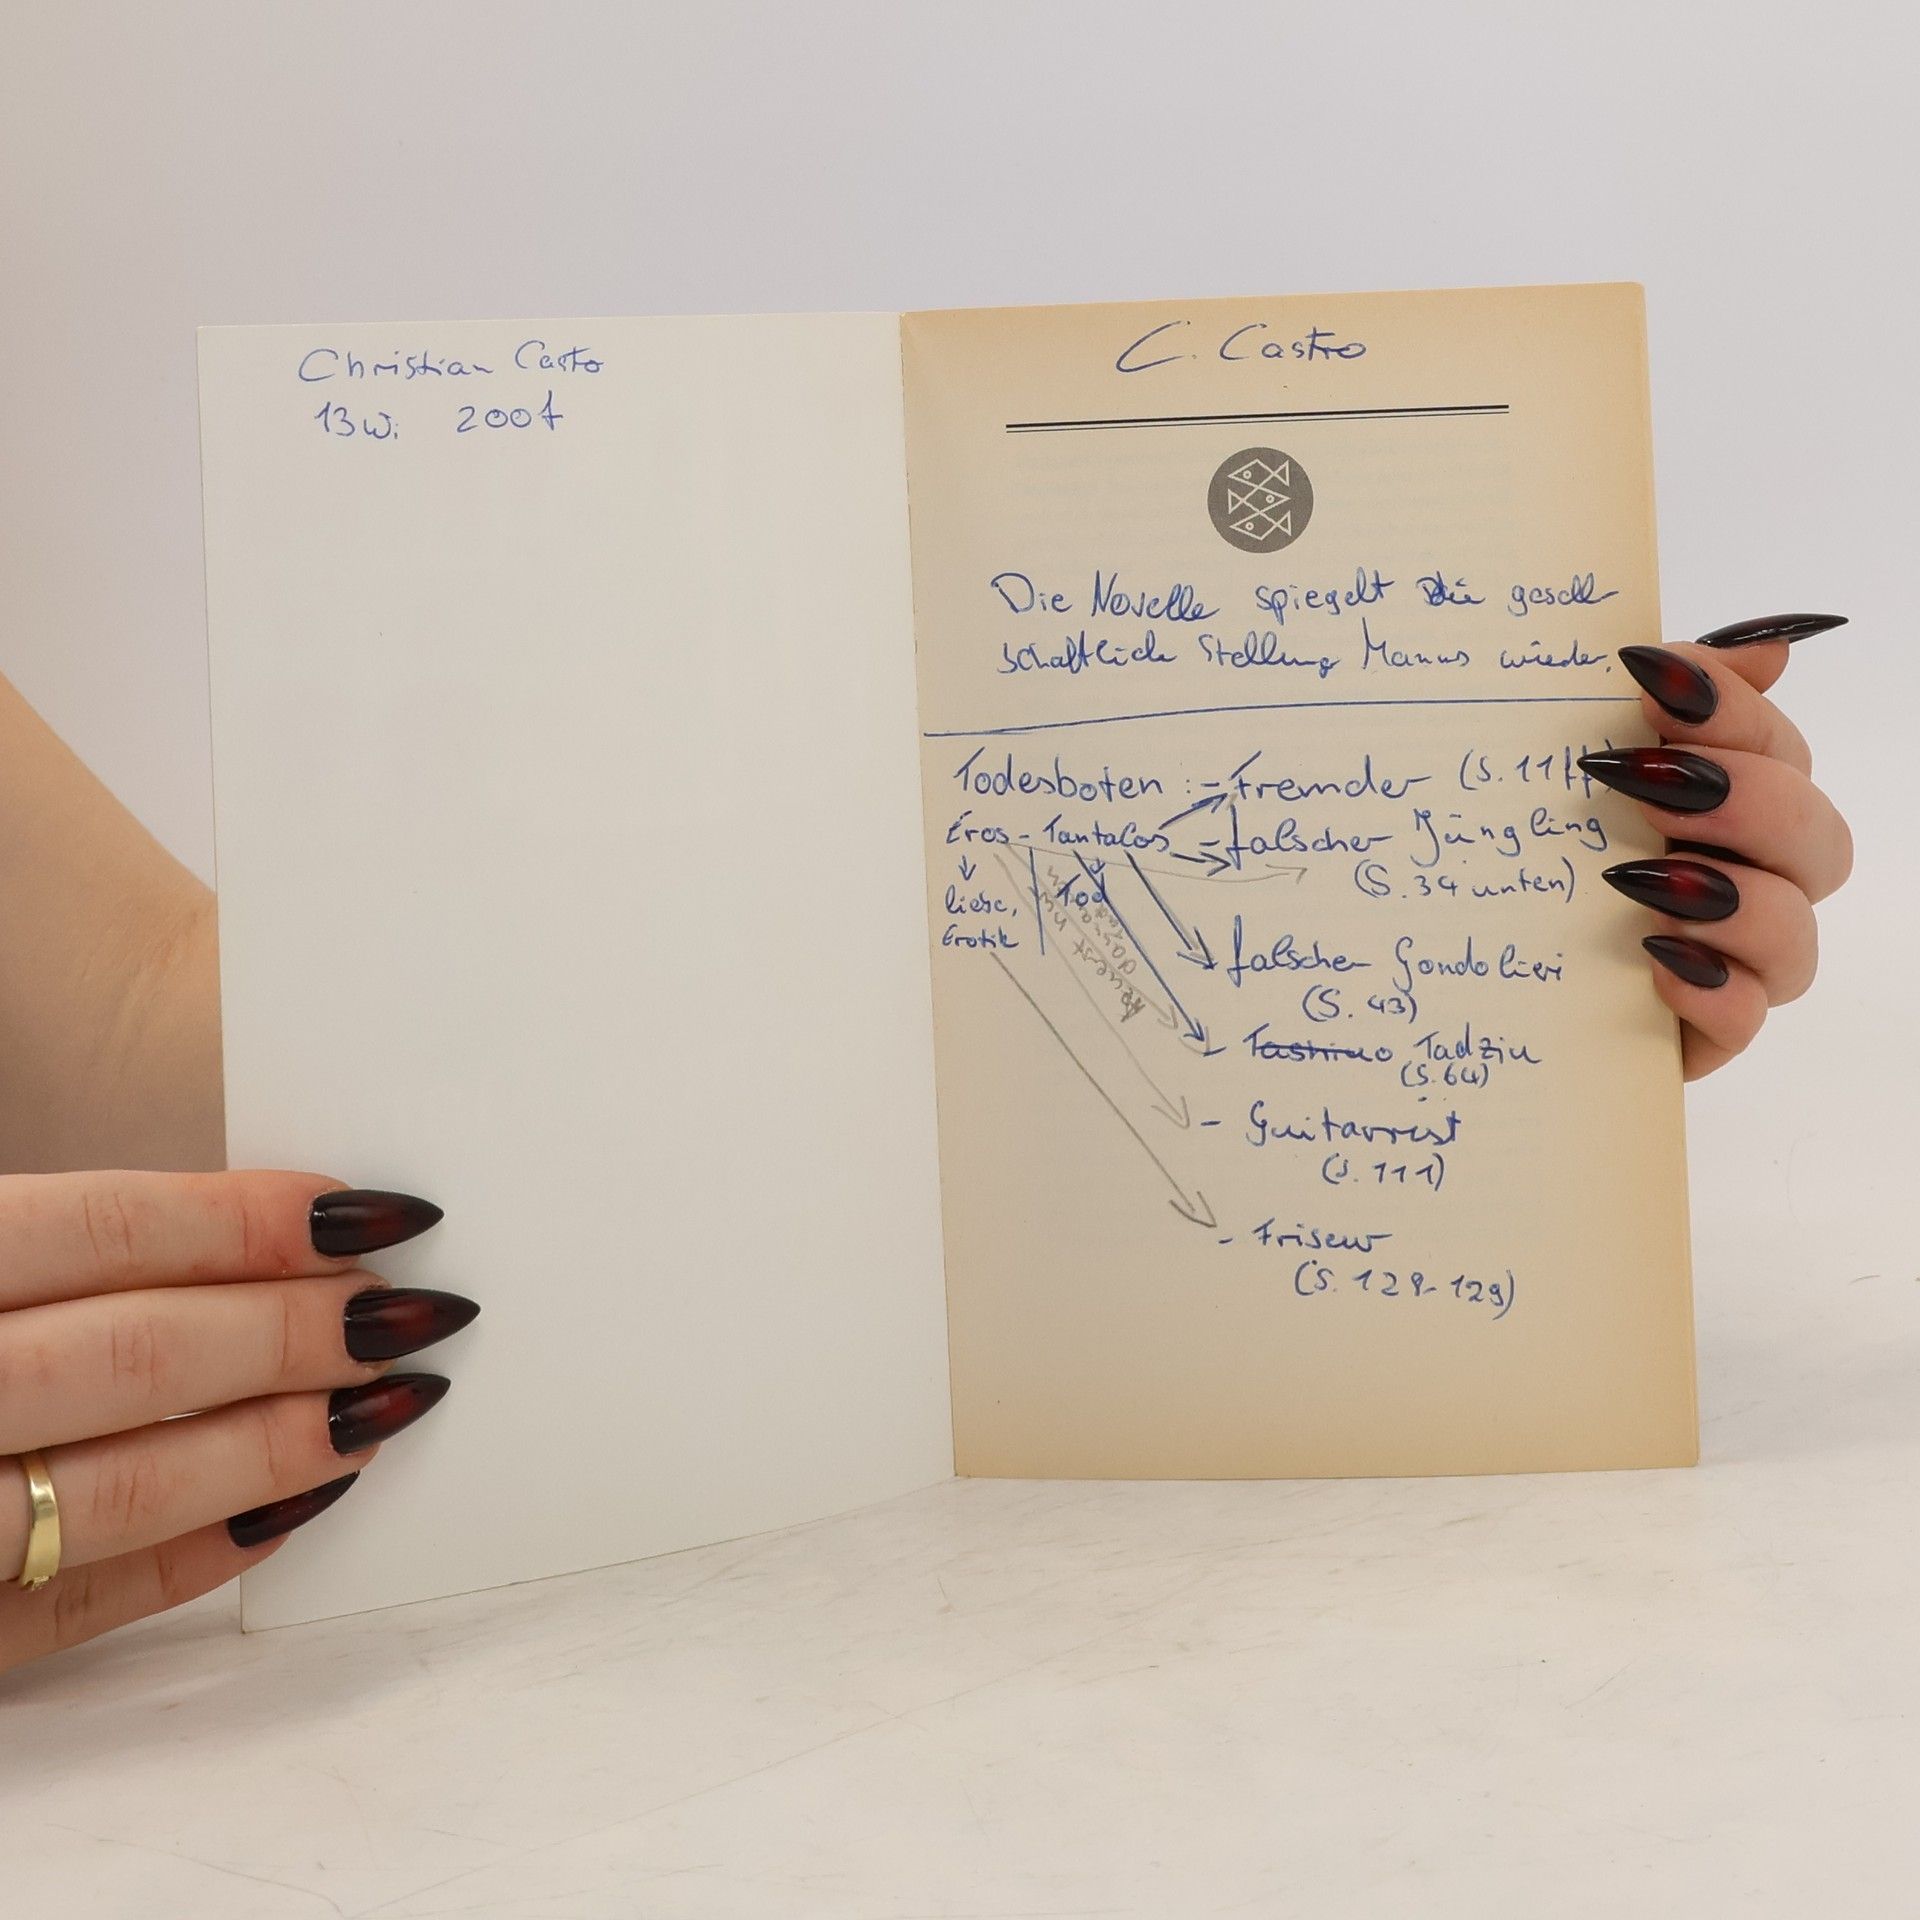 Christian Castro
13Wi 2007
C. Castro
Die Novelle spiegelt die gesell-
schaftliche Stellung Manns wieder.
Todesboten : - Fremder (S. 11ff)
Eros - Tantalos - falscher Jüngling
(S. 34 unten)
↓
liebe, Tod
Erotik
zuerst nur
dann
falscher Gondolieri
(S. 43)
- Tadziu
(S. 64)
- Guitarrist
(S. 111)
- Friseur
(S. 128-129)